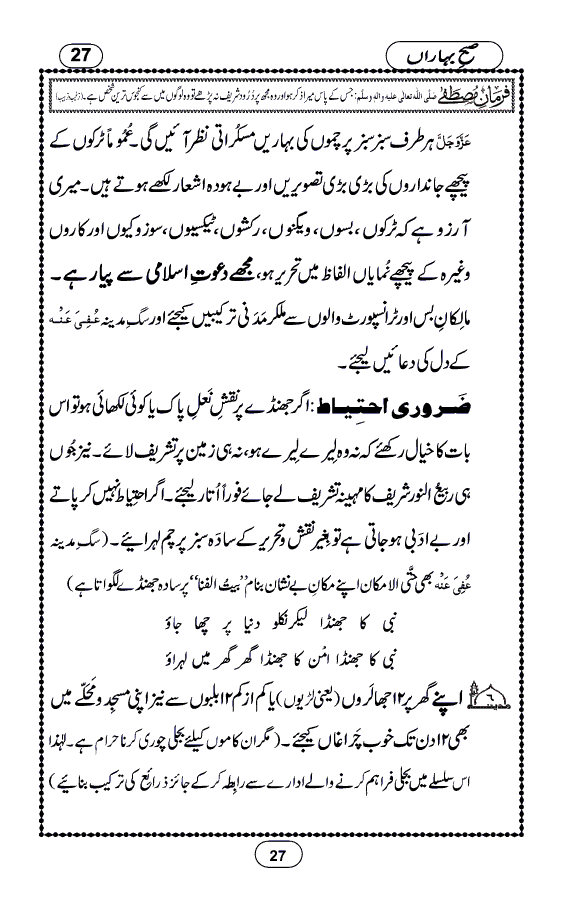 صبحِ بہاراں
27
فرمانِ مصطَفٰے صلی اللہ تعالیٰ علیہ والہٖ وسلم: جس کے پاس میرا ذکر ہو اور وہ مجھ پر دُرُود شریف نہ پڑھے تو وہ لوگوں میں سے کنجوس ترین شخص ہے۔
عَزَّوَجَلَّ ہر طرف سبز سبز پرچموں کی بہاریں مسکراتی نظر آئیں گی۔ عُمُوماً ٹرکوں کے
پیچھے جانداروں کی بڑی بڑی تصویریں اور بے ہودہ اشعار لکھے ہوتے ہیں۔ میری
آرزو ہے کہ ٹرکوں، بسوں، ویگنوں، رکشوں، ٹیکسیوں، سوزوکیوں اور کاروں
وغیرہ کے پیچھے نُمایاں الفاظ میں تحریر ہو، مجھے دعوتِ اسلامی سے پیار ہے۔
مالِکانِ بس اور ٹرانسپورٹ والوں سے ملکر مَدَنی ترکیبیں کیجئے اور سگِ مدینہ عُفِیَ عَنْہ
کے دل کی دعائیں لیجئے۔
ضَروری احتِیاط: اگر جھنڈے پر نقشِ نَعلِ پاک یا کوئی لکھائی ہو تو اس
بات کا خیال رکھئے کہ نہ وہ لِیرے لِیرے ہو، نہ ہی زمین پر تشریف لائے۔ نیز جُوں
ہی ربیعُ النور شریف کا مہینہ تشریف لے جائے فوراً اُتار لیجئے۔ اگر احتیاط نہیں کر پاتے
اور بے ادَبی ہو جاتی ہے تو بِغیر نقش و تحریر کے سادہ سبز پرچم لہرائیے۔ (سگِ مدینہ
عُفِیَ عَنْہ بھی حتَّی الامکان اپنے مکانِ بے نشان بنام ”بیتُ الفنا“ پر سادہ جھنڈے لگواتا ہے)
نبی کا جھنڈا لیکر نکلو دنیا پر چھا جاؤ
نبی کا جھنڈا امْن کا جھنڈا گھر گھر میں لہراؤ
۶ اپنے گھر پر ۱۲ جھالروں (یعنی لڑیوں) یا کم از کم ۱۲ بلبوں سے نیز اپنی مسجد و مَحَلّے میں
بھی ۱۲ دن تک خوب چَراغاں کیجئے۔ (مگر ان کاموں کیلئے بجلی چوری کرنا حرام ہے۔ لہٰذا
اس سلسلے میں بجلی فراہم کرنے والے ادارے سے رابِطہ کر کے جائز ذرائع کی ترکیب بنائیے)
27